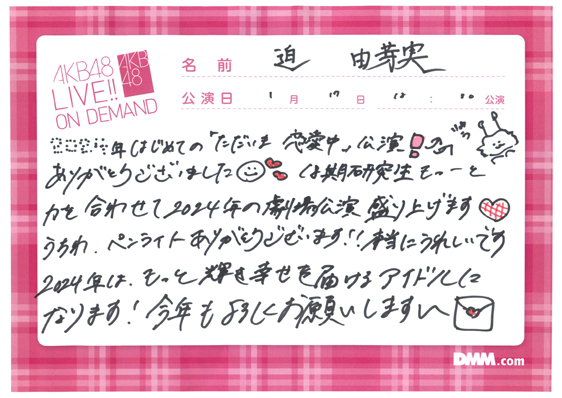 AKB48
LIVE!!
ON DEMAND
AKB
48
名前 迫 由芽実
公演日 1月17日 18:30公演
2024年はじめての「ただいま 恋愛中」公演!
ありがとうございました 18期研究生もっーと
力を合わせて2024年の劇場公演盛り上げます
うちわ、ペンライトありがとうございます!!本当にうれしいです
2024年は、もっと輝き幸せを届けるアイドルに
なります!今年もよろしくお願いします
DMM.com